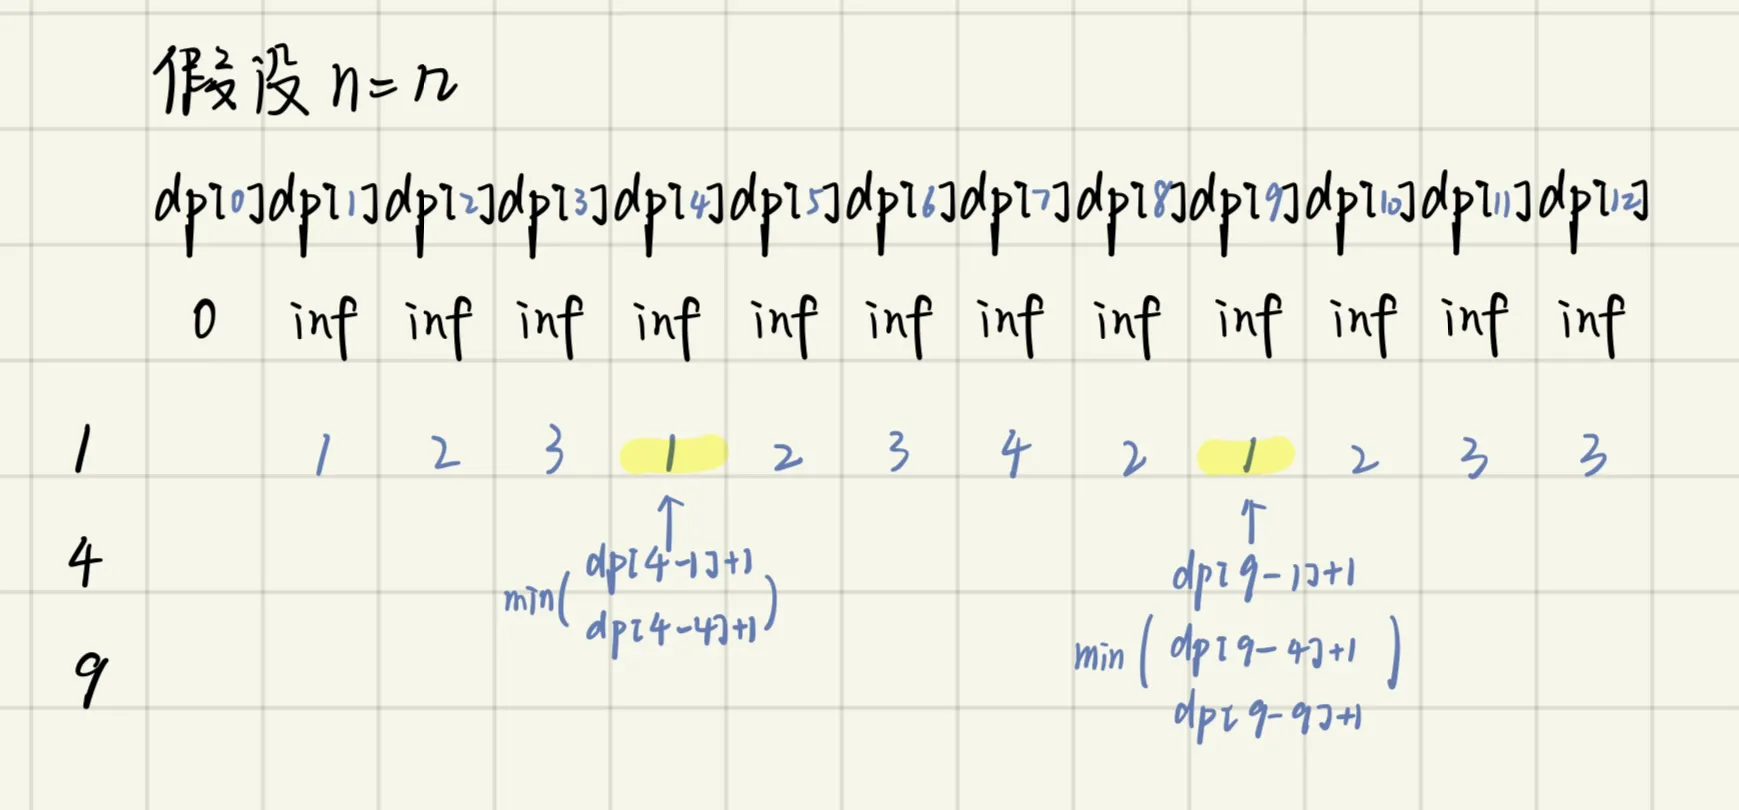 假设 n=12
dp[0] dp[1] dp[2] dp[3] dp[4] dp[5] dp[6] dp[7] dp[8] dp[9] dp[10] dp[11] dp[12]
0 inf inf inf inf inf inf inf inf inf inf inf inf
1 1 2 3 1 2 3 4 2 1 2 3 3
4
9
↑
min( dp[4-1]+1
dp[4-4]+1 )
↑
dp[9-1]+1
min ( dp[9-4]+1 )
dp[9-9]+1